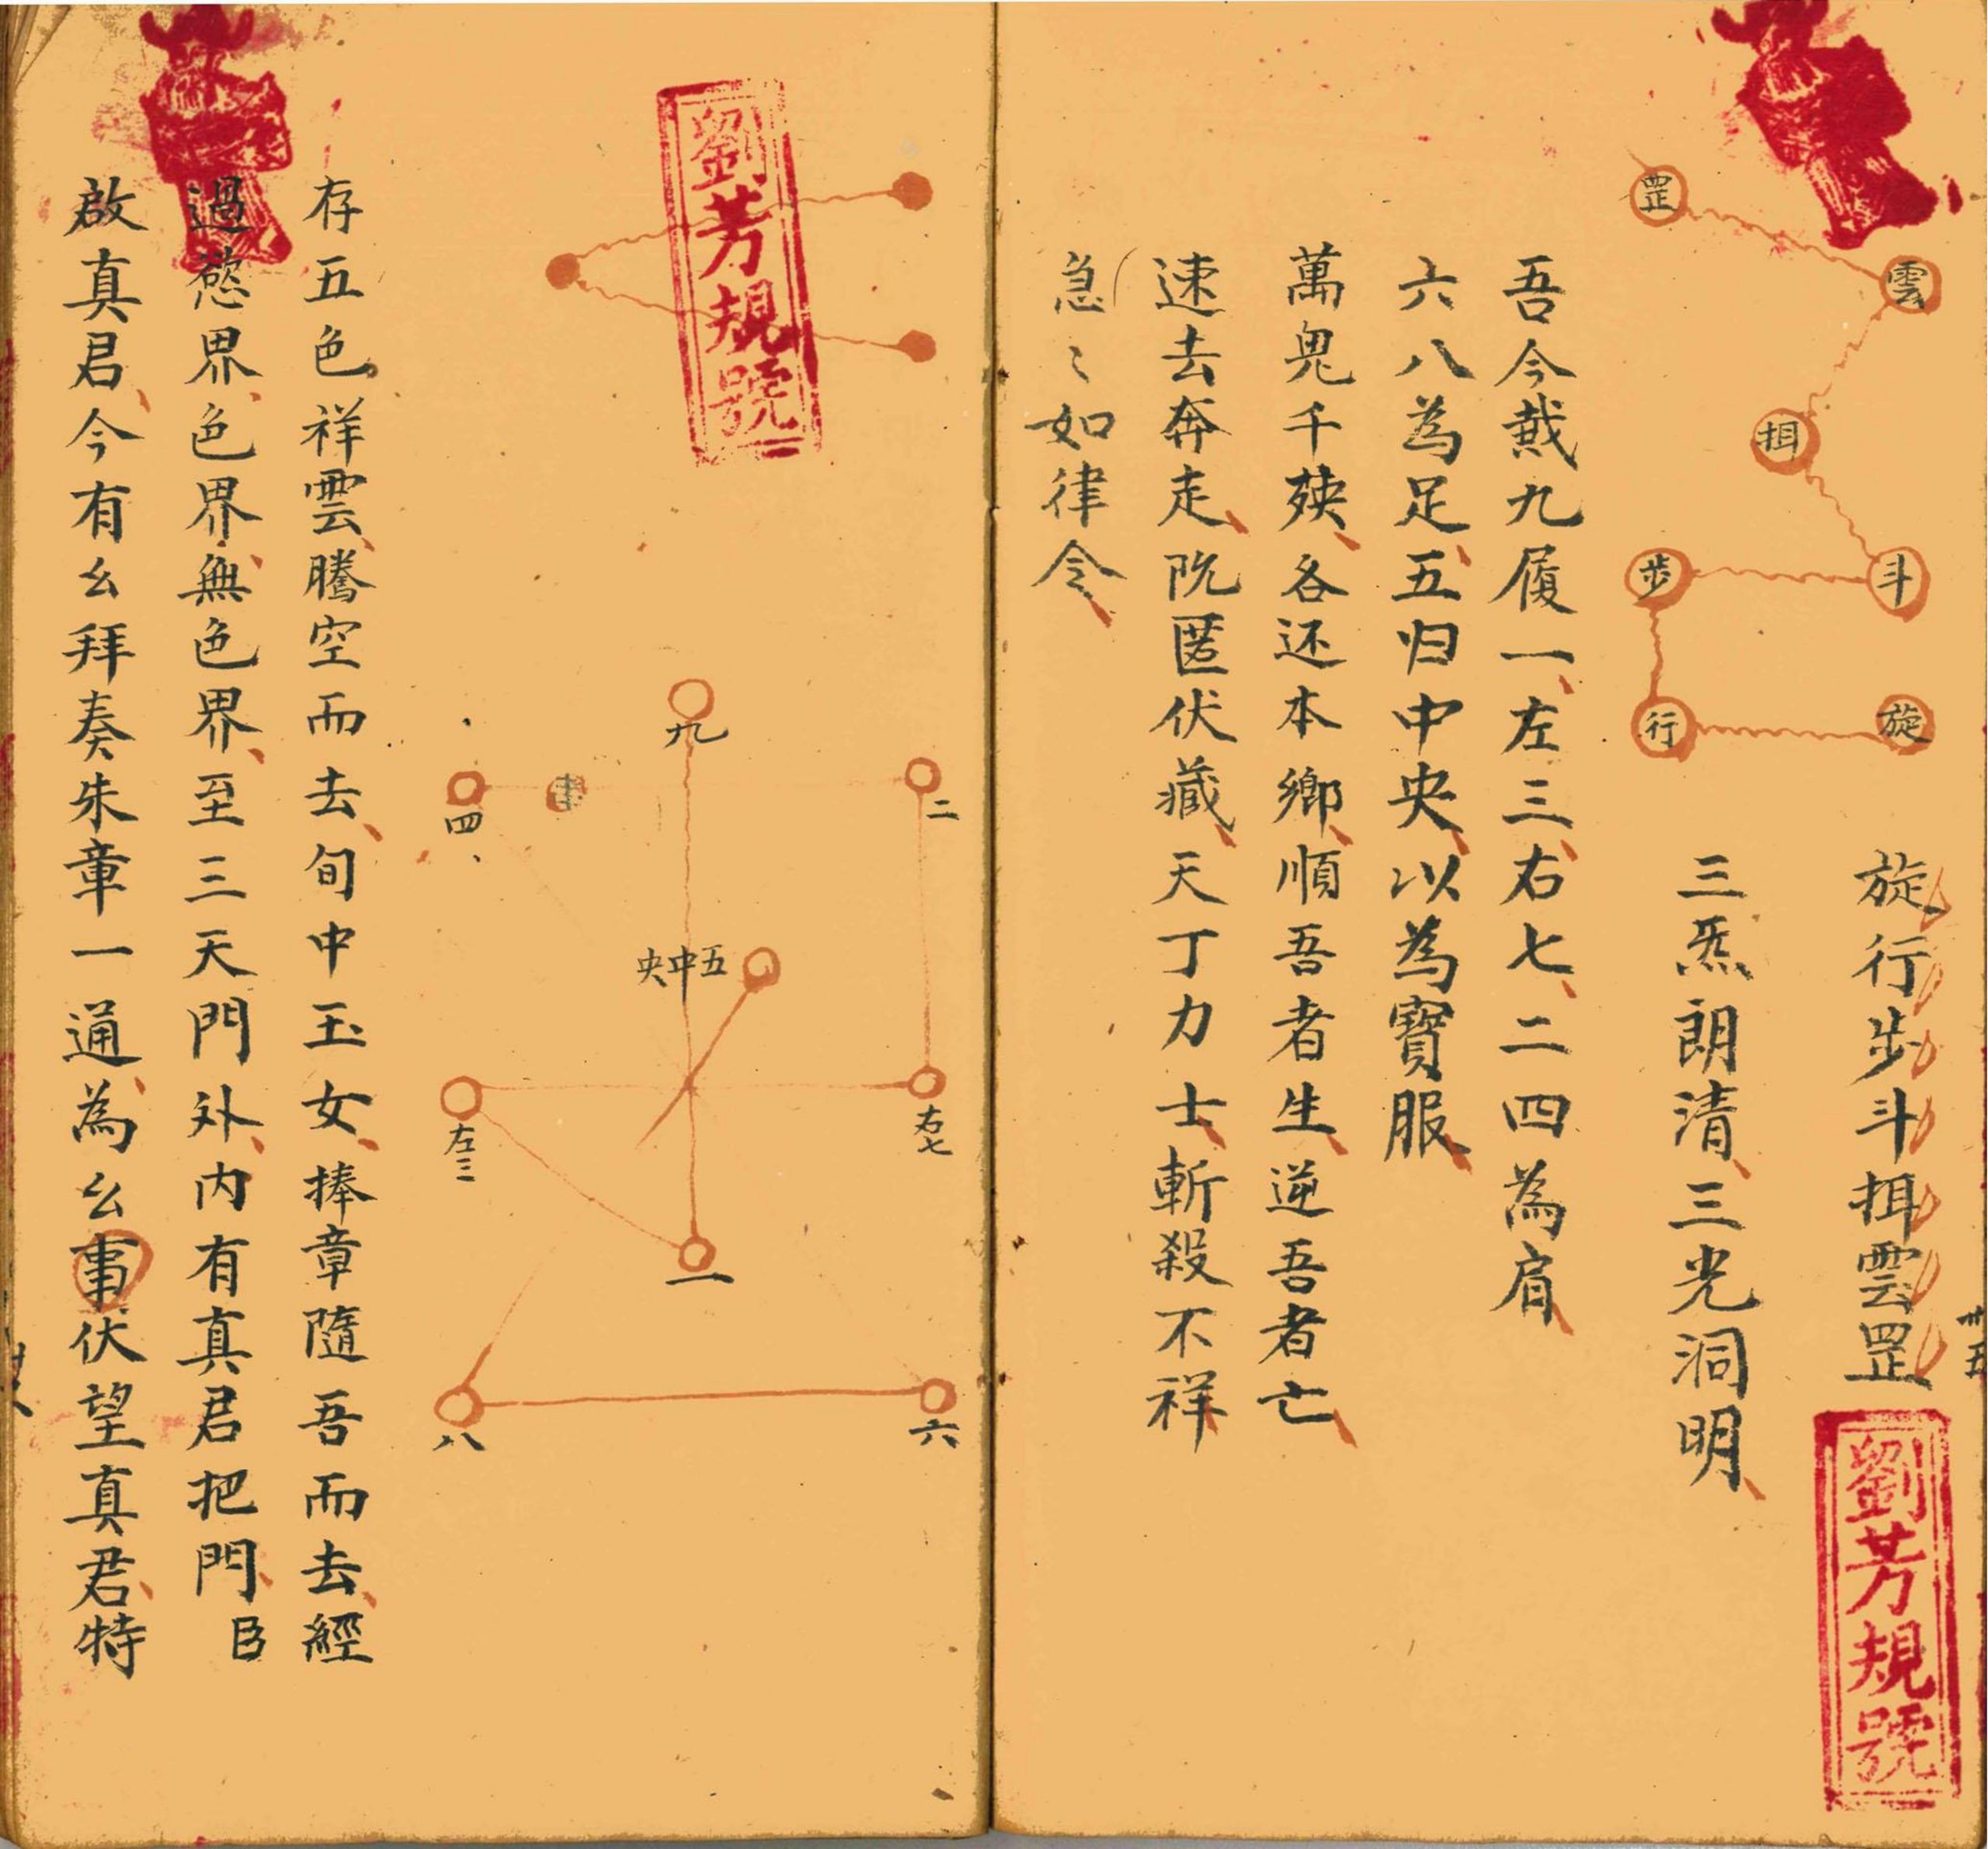 罡
雲
挕
斗
步
行
旋
旋行步斗挕雲罡
三炁朗清三光洞明
吾今戴九履一左三右七二四為肩
六八為足五归中央以為寶服
萬鬼千殃各还本鄉順吾者生逆吾者亡
速去奔走匿伏藏天丁力士斬殺不祥
急〻如律令
劉芳規號
劉芳規號
九
二
四
五中央
右七
左三
一
六
八
存五色祥雲騰空而去旬中玉女捧章隨吾而去經
過慾界色界無色界至三天門外内有真君把門臣
啟真君今有幺拜奏朱章一通為幺事伏望真君特